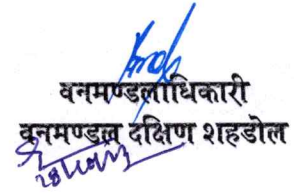 वनमण्डलाधिकारी
वनमण्डल दक्षिण शहडोल